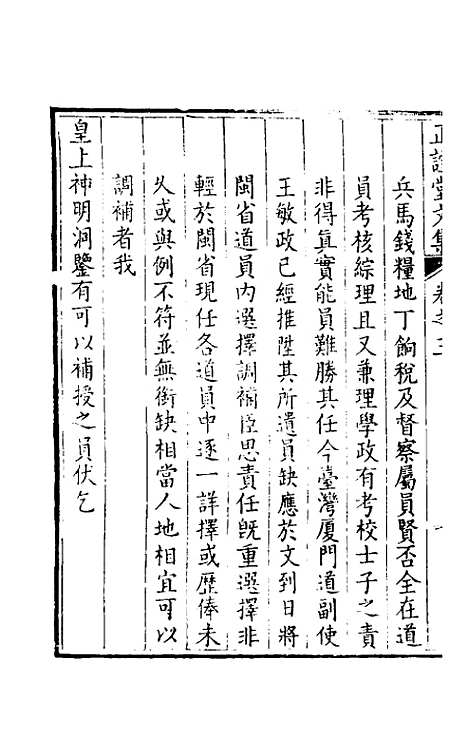 正誼堂文集 卷之二
兵馬錢糧地丁餉稅及督察屬員賢否全在道
員考核綜理且又兼理學政有考校士子之責
非得真實能員難勝其任今臺灣厦門道副使
王敏政已經推陞其所遺員缺應於文到日將
閩省道員内選擇調補臣思責任旣重選擇非
輕於閩省現任各道員中逐一詳擇或歷俸未
久或與例不符並無銜缺相當人地相宜可以
調補者我
皇上神明洞鑒有可以補授之員伏乞